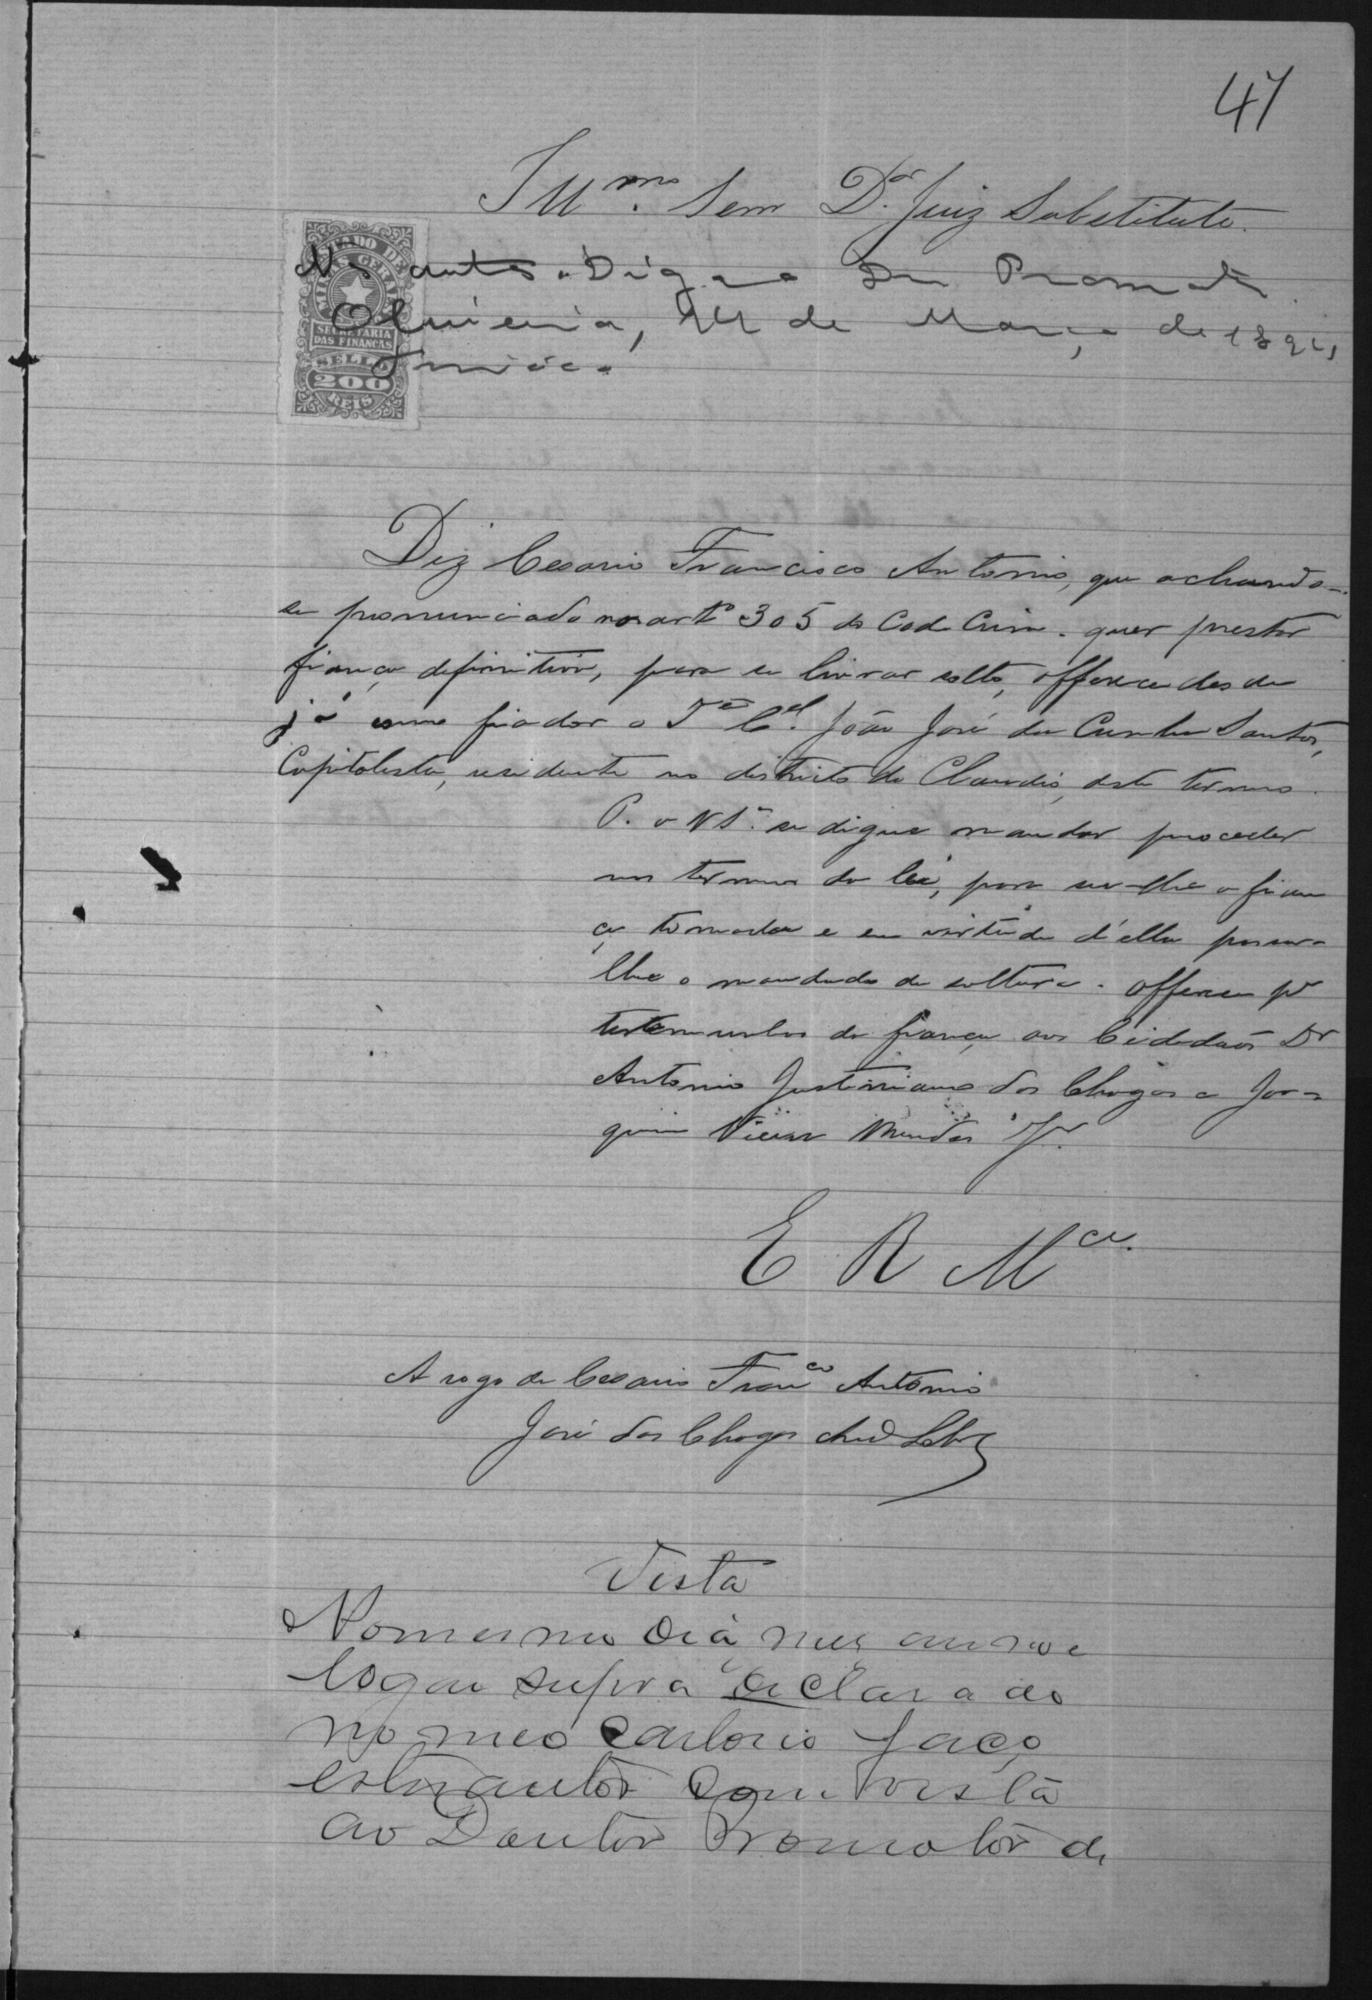 47
Illmo. Senr. Dor. Juiz Substituto.
ESTADO DE
MINAS GERAES
SECRETARIA
DAS FINANÇAS
SELLO
200
REIS
Nos autos. Diga o Dr Promotor.
Oliveira, 14 de Março de 1894
Diz Cesario Francisco Antonio, que achando-
se pronunciado no art. 305 do Cod. Crim. quer prestar
fiança definitiva, para se livrar solto, offerece desde
já como fiador o Te. Cel. João José da Cunha Santos,
Capitalista, residente no districto do Claudio, deste termo.
P. a V S.a se digne mandar proceder
nos termos da lei, para ser-lhe a fian
ça tomada e em virtude d'ella passar-
lhe o mandado de soltura. Offerece pr
testemunhas da fiança aos Cidadãos Dr
Antonio Justiniano das Chagas e Joa-
quim Vieira Mendes Jr.
E R Mce.
A rogo de Cesario Franco Antonio
José das Chagas
Vista
No mesmo dia, mez anno e
logar supra declarado
no meo cartorio faço
estes autos com vista
ao Doutor Promotor de